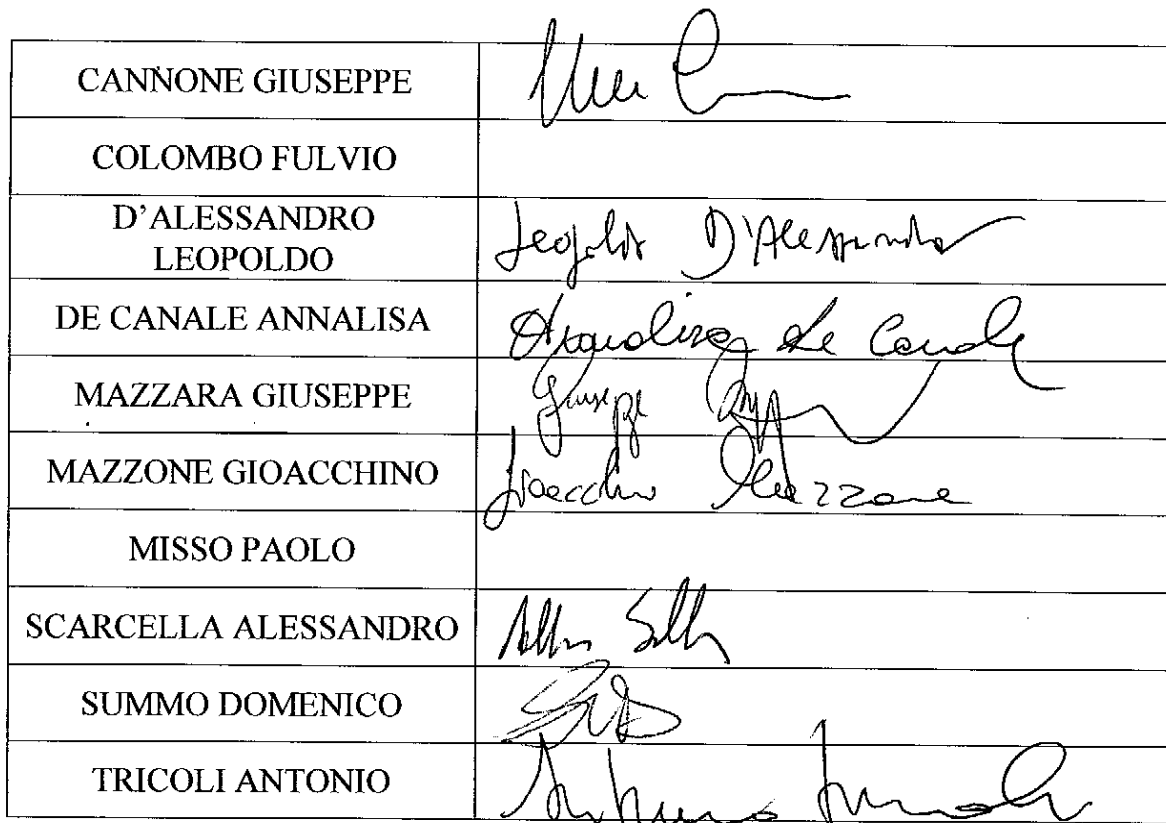 CANNONE GIUSEPPE
COLOMBO FULVIO
D'ALESSANDRO
LEOPOLDO
Leopoldo D'Alessandro
DE CANALE ANNALISA
Annalisa De Canale
MAZZARA GIUSEPPE
Giuseppe
MAZZONE GIOACCHINO
Gioacchino Mazzone
MISSO PAOLO
SCARCELLA ALESSANDRO
SUMMO DOMENICO
TRICOLI ANTONIO
Antonio Tricoli